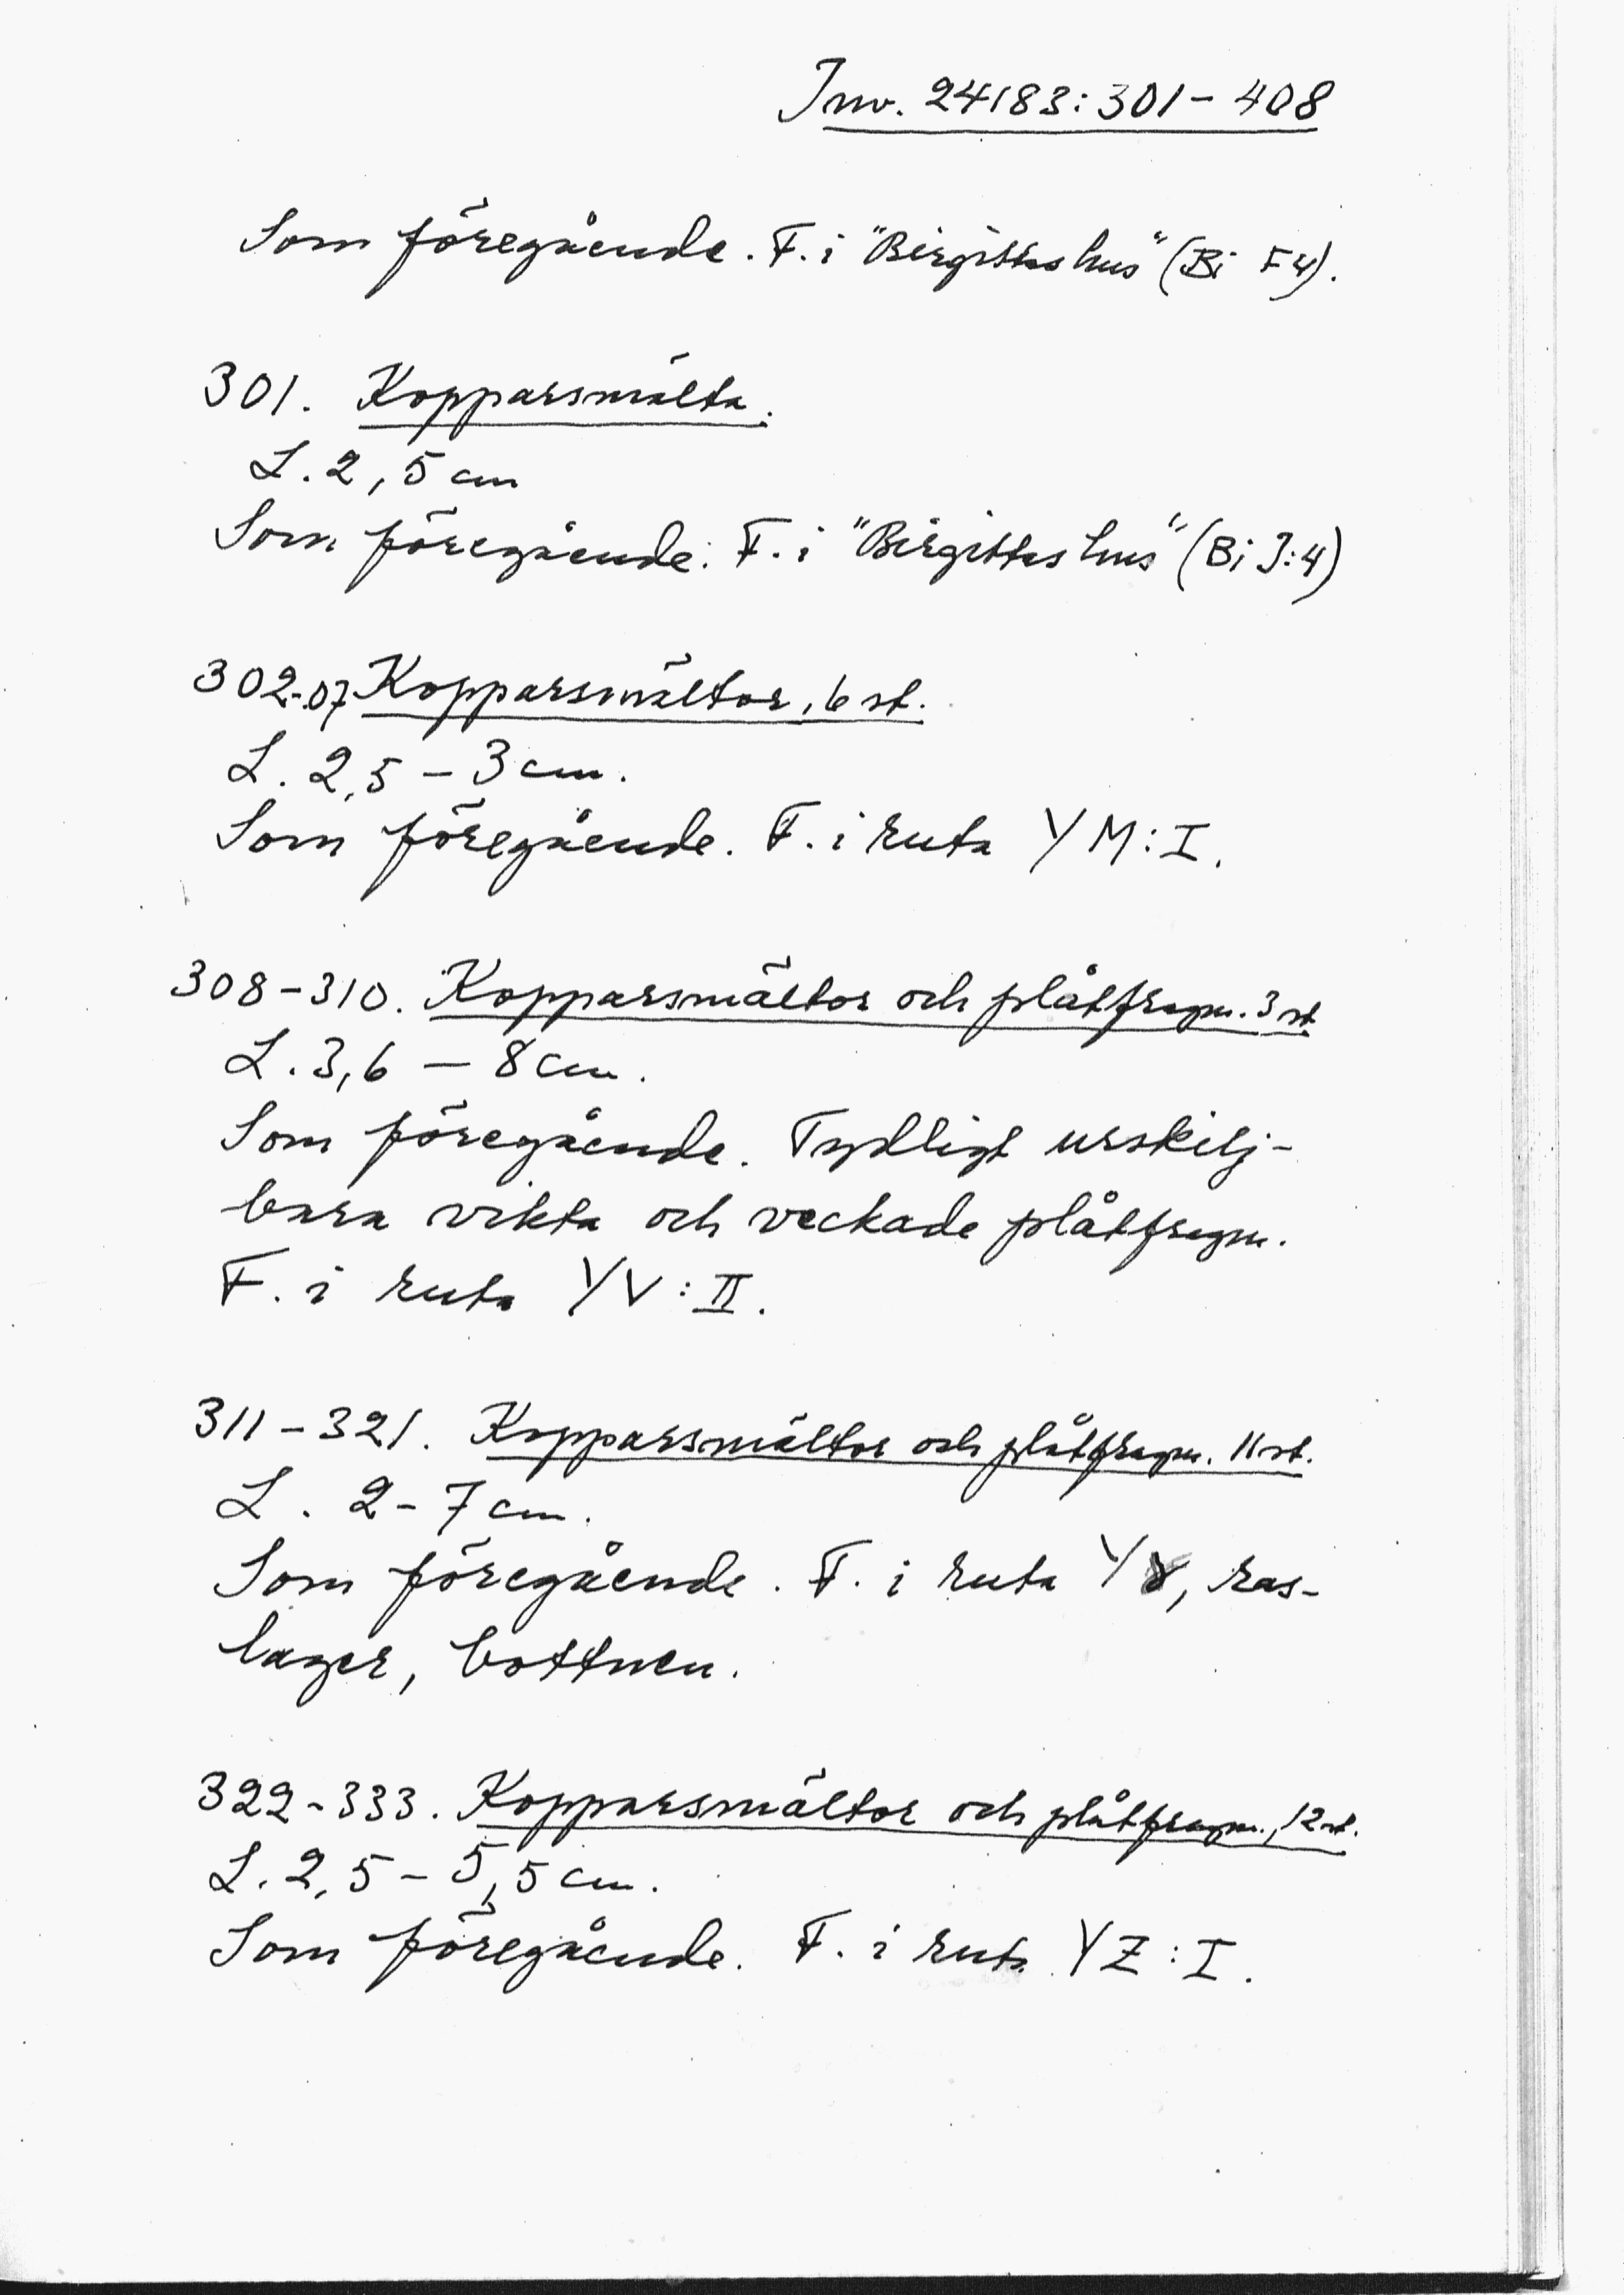 Inv. 24183:301-408
Som föregående. F. i "Birgittas hus" (Bi F4).
301. Kopparsmälta.
L. 2,5 cm
Som föregående. F. i "Birgittas hus" (Bi J:4)
302-07 Kopparsmältor, 6 st.
L. 2,5 - 3 cm.
Som föregående. F. i ruta YM:I.
308-310. Kopparsmältor och plåtfragm. 3 st
L. 3,6 - 8 cm.
Som föregående. Tydligt urskilj-
bara vikta och veckade plåtfragm.
F. i ruta YV:II.
311-321. Kopparsmältor och plåtfragm. 11 st.
L. 2-7 cm.
Som föregående. F. i ruta , ras-
lager, bottnen.
322-333. Kopparsmältor och plåtfragm., 12 st.
L. 2,5 - 5,5 cm.
Som föregående. F. i ruta YZ:I.